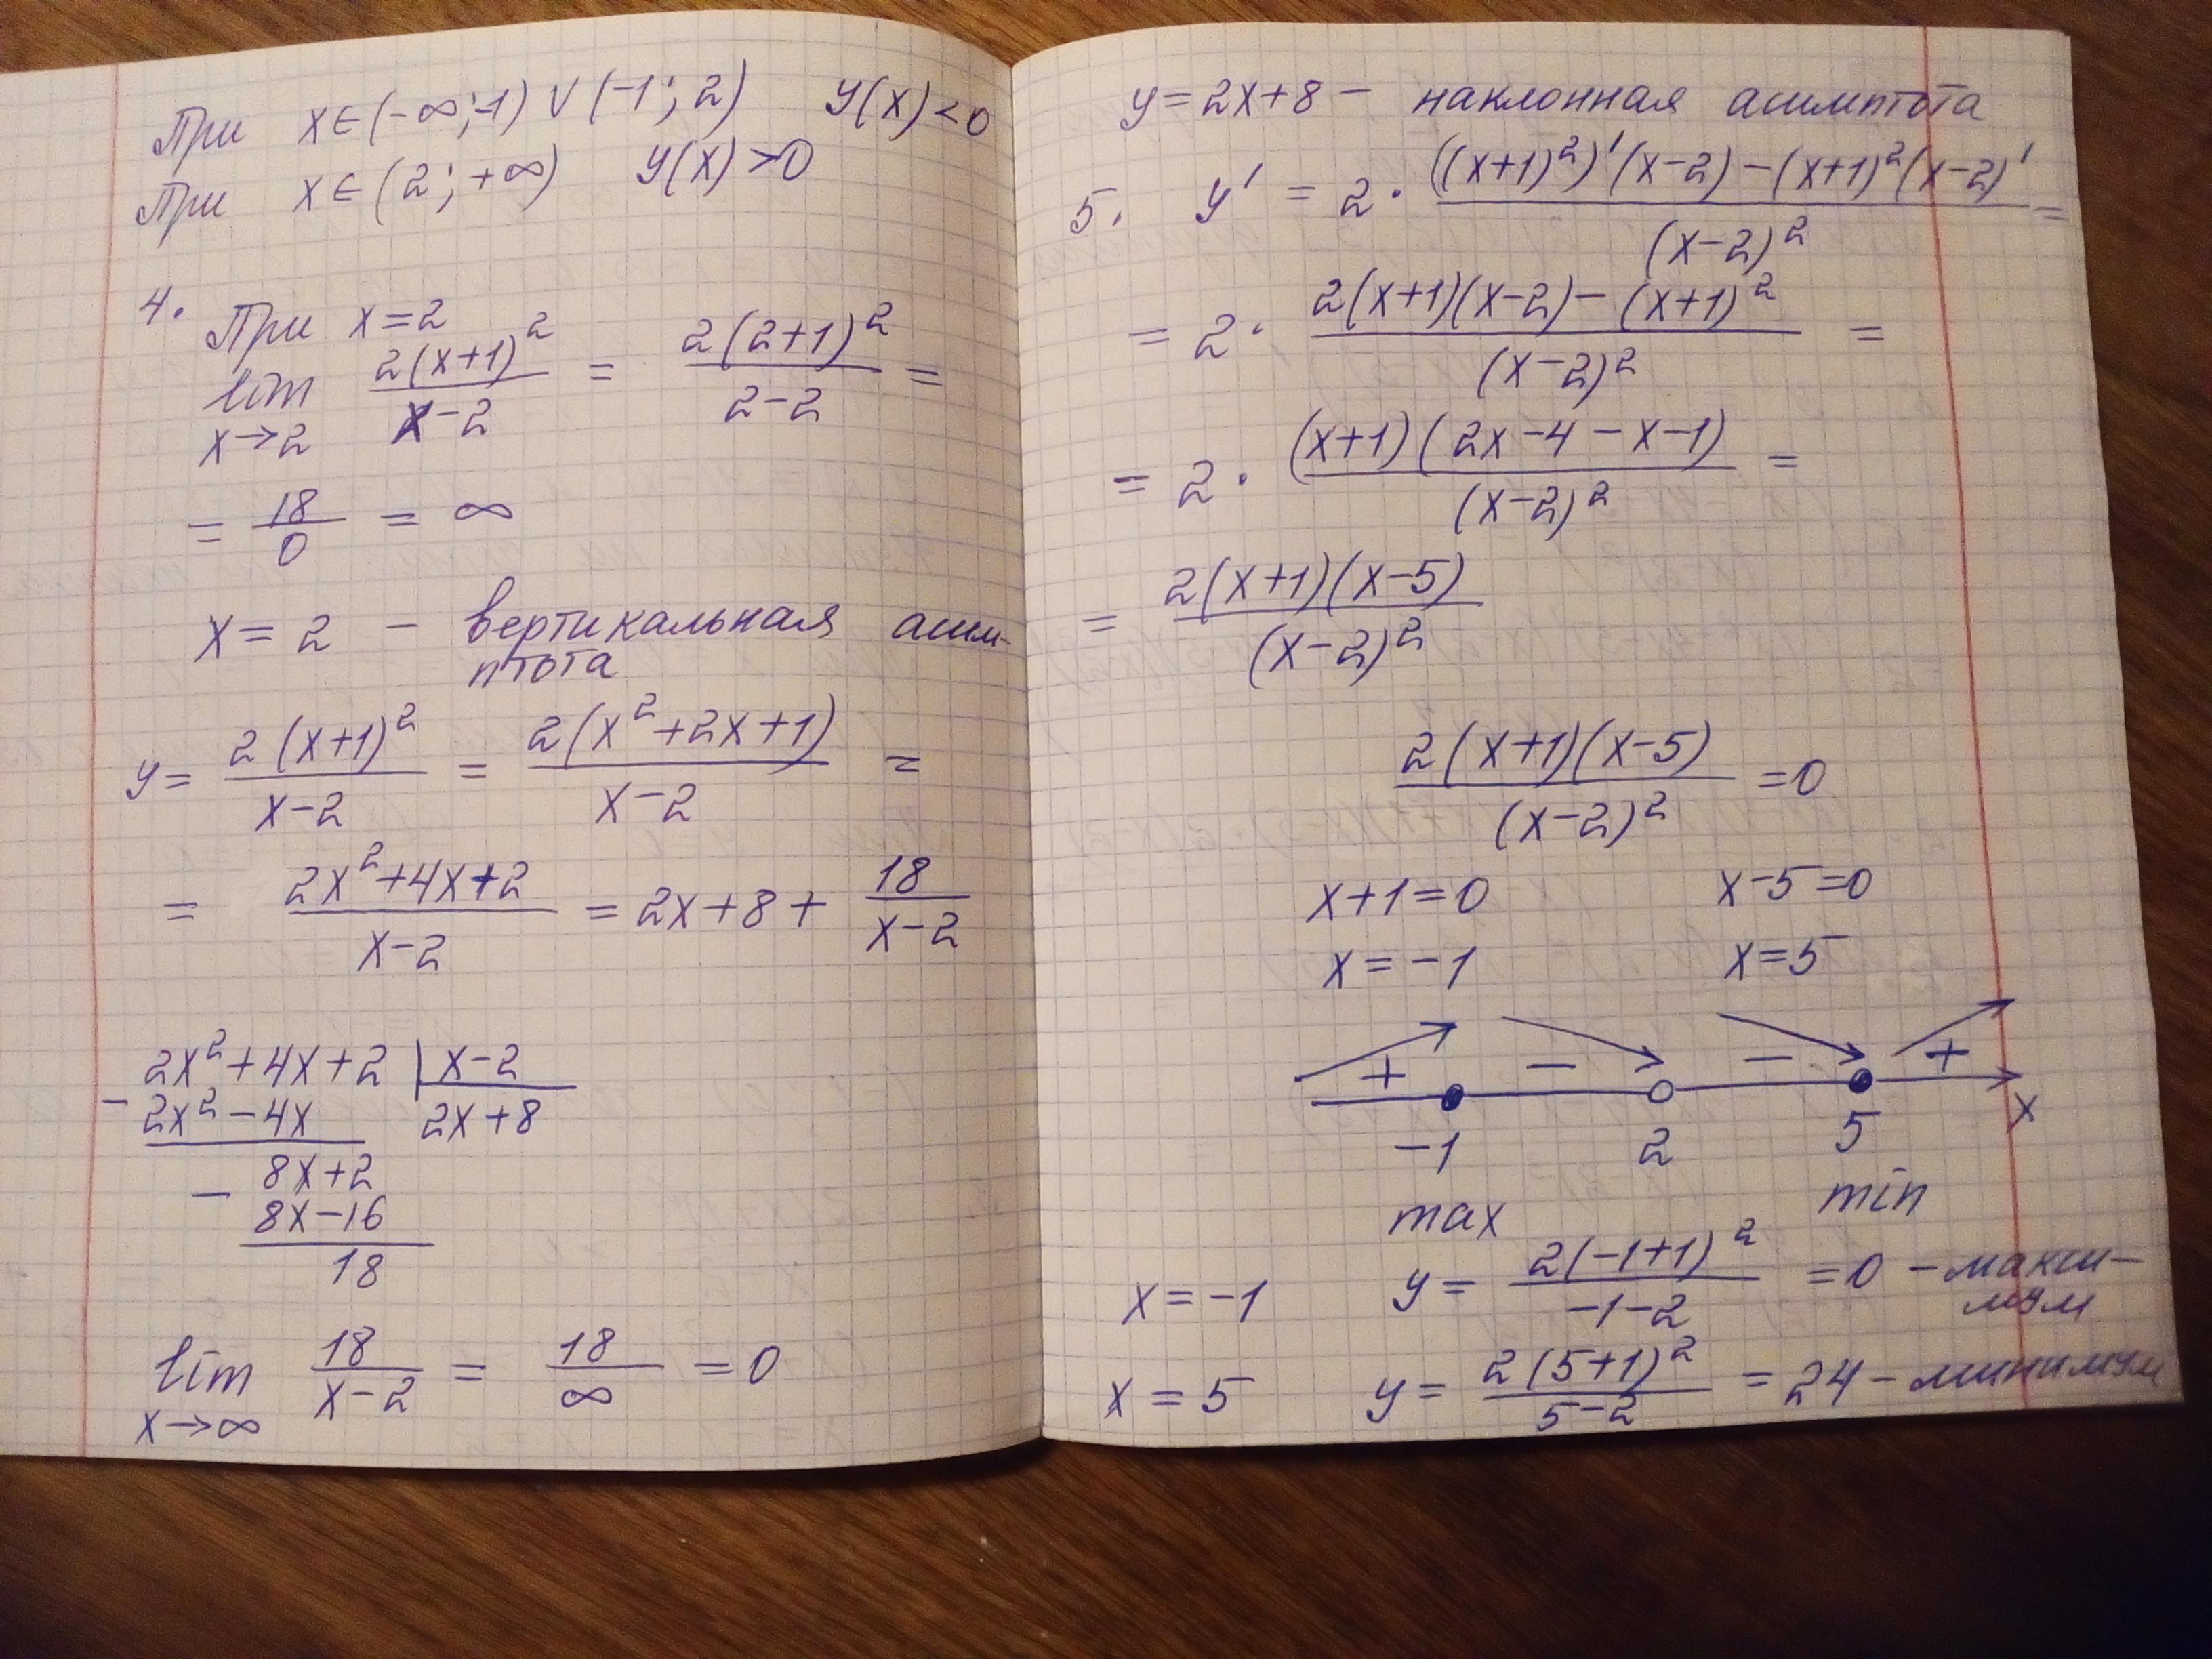 При x∈(-∞;-1)∨(-1;2) y(x)<0
При x∈(2;+∞) y(x)>0
4. При x=2
lim x→2 2(x+1)²/(x-2) = 2(2+1)²/(2-2) =
= 18/0 = ∞
x=2 – вертикальная асим-
птота
y = 2(x+1)²/(x-2) = 2(x²+2x+1)/(x-2) =
= (2x²+4x+2)/(x-2) = 2x+8+ 18/(x-2)
2x²+4x+2 | x-2
- 2x²-4x 2x+8
- 8x+2
8x-16
18
lim x→∞ 18/(x-2) = 18/∞ = 0
y=2x+8 – наклонная асимптота
5. y' = 2· (((x+1)²)'(x-2)-(x+1)²(x-2)')/(x-2)² =
= 2· (2(x+1)(x-2)-(x+1)²)/(x-2)² =
= 2· ((x+1)(2x-4-x-1))/(x-2)² =
= 2(x+1)(x-5)/(x-2)²
2(x+1)(x-5)/(x-2)² =0
x+1=0 x-5=0
x=-1 x=5
+ – – +
-1 2 5 x
max min
x=-1 y= 2(-1+1)²/(-1-2) =0 – макси-
мум
x=5 y= 2(5+1)²/(5-2) =24 – минимум